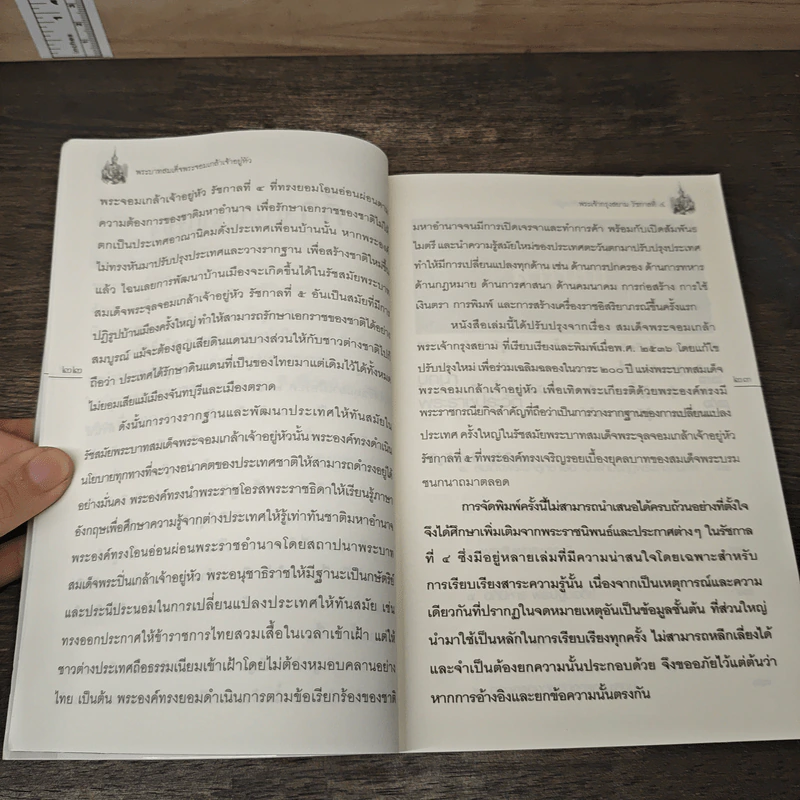 พระบาทสมเด็จพระจอมเกล้าเจ้าอยู่หัว
พระจอมเกล้าเจ้าอยู่หัว รัชกาลที่ ๔ ที่ทรงยอมโอนอ่อนผ่อนตาม
ความต้องการของชาติมหาอำนาจ เพื่อรักษาเอกราชของชาติไม่ให้
ตกเป็นประเทศอาณานิคมดังประเทศเพื่อนบ้านนั้น หากพระองค์
ไม่ทรงหันมาปรับปรุงประเทศและวางรากฐาน เพื่อสร้างชาติใหม่ขึ้น
แล้ว ไฉนเลยการพัฒนาบ้านเมืองจะเกิดขึ้นได้ในรัชสมัยพระบาท
สมเด็จพระจุลจอมเกล้าเจ้าอยู่หัว รัชกาลที่ ๕ อันเป็นสมัยที่มีการ
ปฏิรูปบ้านเมืองครั้งใหญ่ ทำให้สามารถรักษาเอกราชของชาติได้อย่าง
สมบูรณ์ แม้จะต้องสูญเสียดินแดนบางส่วนให้กับชาวต่างชาติไปก็
ถือว่า ประเทศได้รักษาดินแดนที่เป็นของไทยมาแต่เดิมไว้ได้ทั้งหมด
ไม่ยอมเสียแม้เมืองจันทบุรีและเมืองตราด
ดังนั้นการวางรากฐานและพัฒนาประเทศให้ทันสมัยใน
รัชสมัยพระบาทสมเด็จพระจอมเกล้าเจ้าอยู่หัวนั้น พระองค์ทรงดำเนิน
นโยบายทุกทางที่จะวางอนาคตของประเทศชาติให้สามารถดำรงอยู่ได้
อย่างมั่นคง พระองค์ทรงนำพระราชโอรสพระราชธิดาให้เรียนรู้ภาษา
อังกฤษเพื่อศึกษาความรู้จากต่างประเทศให้รู้เท่าทันชาติมหาอำนาจ
พระองค์ทรงโอนอ่อนผ่อนพระราชอำนาจโดยสถาปนาพระบาท
สมเด็จพระปิ่นเกล้าเจ้าอยู่หัว พระอนุชาธิราชให้มีฐานะเป็นกษัตริย์
และประนีประนอมในการเปลี่ยนแปลงประเทศให้ทันสมัย เช่น
ทรงออกประกาศให้ข้าราชการไทยสวมเสื้อในเวลาเข้าเฝ้า แต่ให้
ชาวต่างประเทศถือธรรมเนียมเข้าเฝ้าโดยไม่ต้องหมอบคลานอย่าง
ไทย เป็นต้น พระองค์ทรงยอมดำเนินการตามข้อเรียกร้องของชาติ
๒๒
พระเจ้ากรุงสยาม รัชกาลที่ ๔
มหาอำนาจจนมีการเปิดเจรจาและทำการค้า พร้อมกับเปิดสัมพันธ
ไมตรี และนำความรู้สมัยใหม่ของประเทศตะวันตกมาปรับปรุงประเทศ
ทำให้มีการเปลี่ยนแปลงทุกด้าน เช่น ด้านการปกครอง ด้านการทหาร
ด้านกฎหมาย ด้านการศาสนา ด้านคมนาคม การก่อสร้าง การใช้
เงินตรา การพิมพ์ และการสร้างเครื่องราชอิสริยาภรณ์ขึ้นครั้งแรก
หนังสือเล่มนี้ได้ปรับปรุงจากเรื่อง สมเด็จพระจอมเกล้า
พระเจ้ากรุงสยาม ที่เรียบเรียงและพิมพ์เมื่อพ.ศ. ๒๕๓๖ โดยแก้ไข
ปรับปรุงใหม่ เพื่อร่วมเฉลิมฉลองในวาระ ๒๐๐ ปี แห่งพระบาทสมเด็จ
พระจอมเกล้าเจ้าอยู่หัว เพื่อเทิดพระเกียรติด้วยพระองค์ทรงมี
พระราชกรณียกิจสำคัญที่ถือว่าเป็นการวางรากฐานของการเปลี่ยนแปลง
ประเทศ ครั้งใหญ่ในรัชสมัยพระบาทสมเด็จพระจุลจอมเกล้าเจ้าอยู่หัว
รัชกาลที่ ๕ ที่พระองค์ทรงเจริญรอยเบื้องยุคลบาทของสมเด็จพระบรม
ชนกนาถมาตลอด
การจัดพิมพ์ครั้งนี้ไม่สามารถนำเสนอได้ครบถ้วนอย่างที่ตั้งใจ
จึงได้ศึกษาเพิ่มเติมจากพระราชนิพนธ์และประกาศต่างๆ ในรัชกาล
ที่ ๔ ซึ่งมีอยู่หลายเล่มที่มีความน่าสนใจโดยเฉพาะสำหรับ
การเรียบเรียงสาระความรู้นั้น เนื่องจากเป็นเหตุการณ์และความ
เดียวกันที่ปรากฏในจดหมายเหตุอันเป็นข้อมูลชั้นต้น ที่ส่วนใหญ่
นำมาใช้เป็นหลักในการเรียบเรียงทุกครั้ง ไม่สามารถหลีกเลี่ยงได้
และจำเป็นต้องยกความนั้นประกอบด้วย จึงขออภัยไว้แต่ต้นว่า
หากการอ้างอิงและยกข้อความนั้นตรงกัน
๒๓